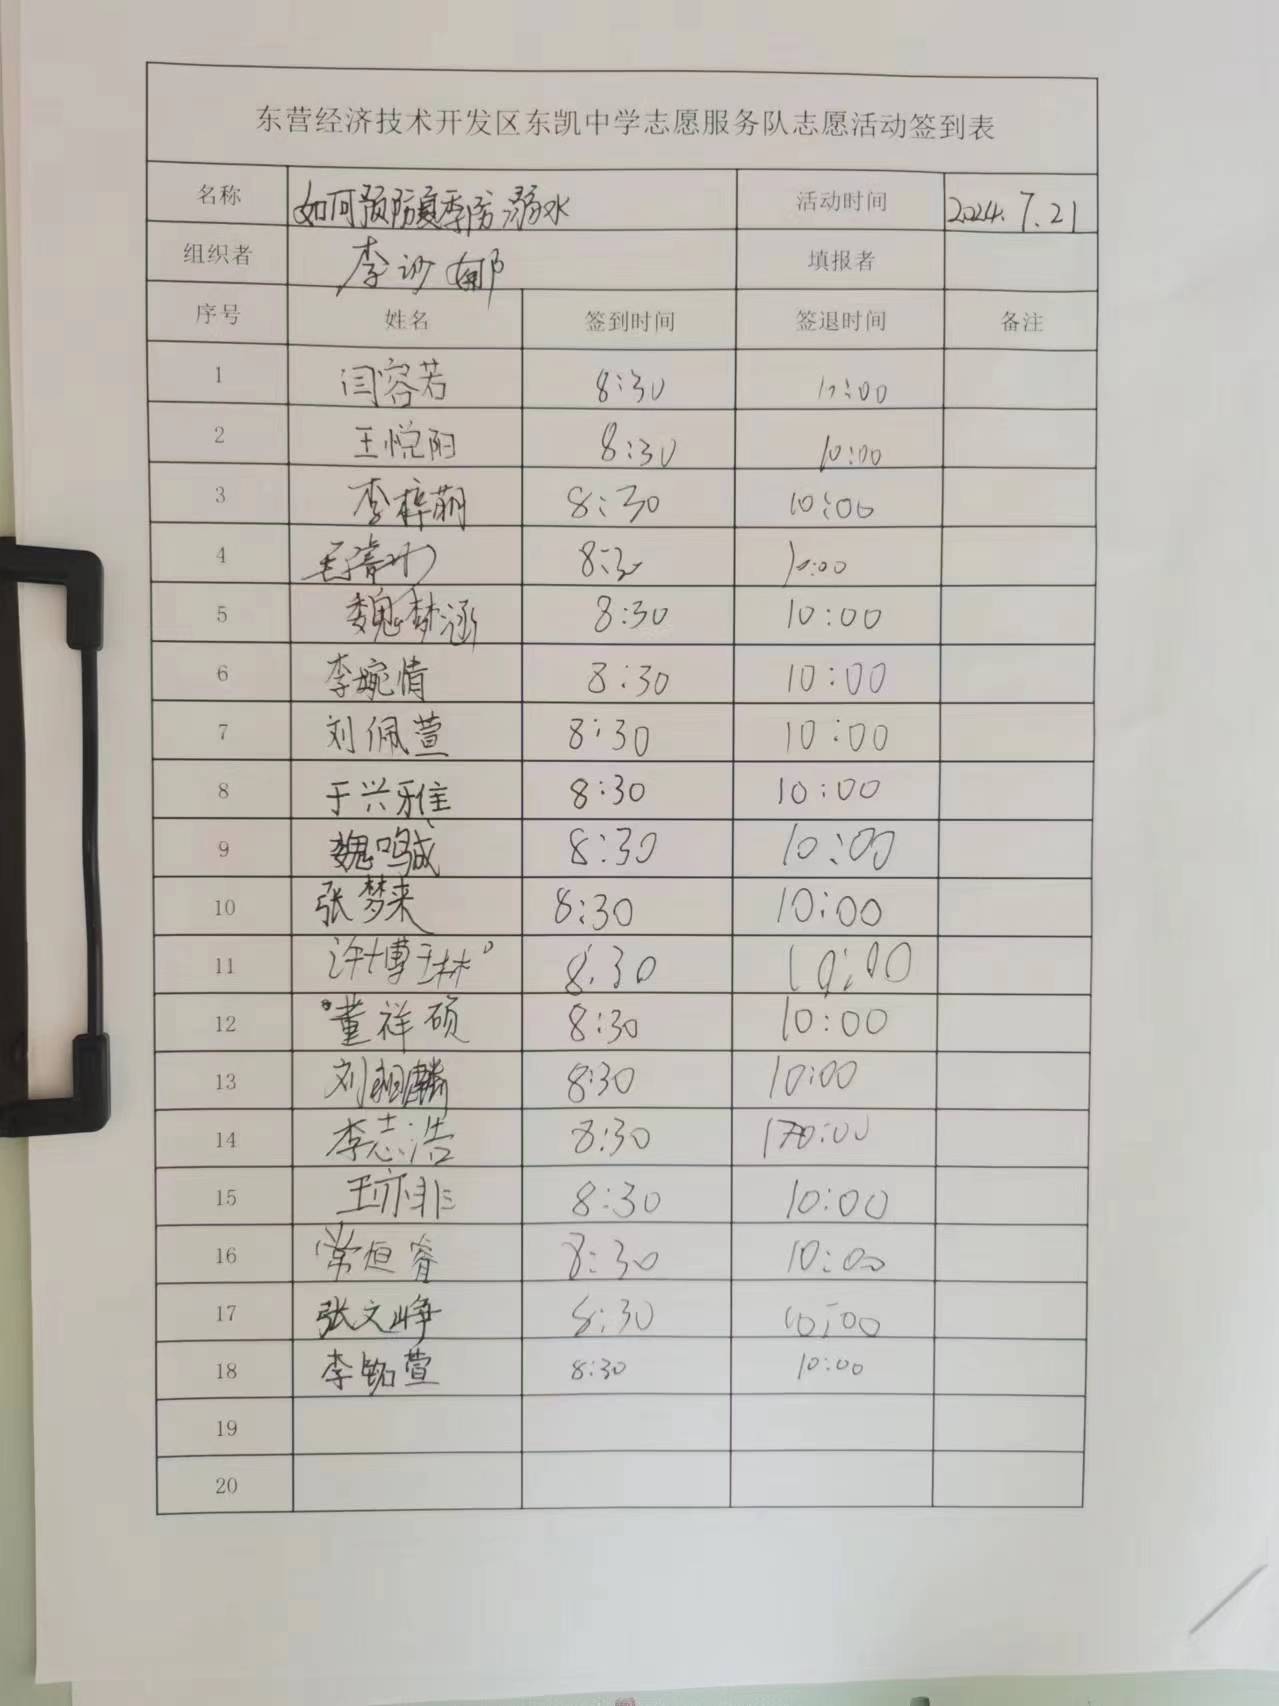 东营经济技术开发区东凯中学志愿服务队志愿活动签到表
名称 如何预防夏季防溺水 活动时间 2024.7.21
组织者 李 填报者
序号 姓名 签到时间 签退时间 备注
1 闫容若 8:30 10:00
2 王悦阳 8:30 10:00
3 李梓萌 8:30 10:00
4 8:30 10:00
5 魏梦涵 8:30 10:00
6 李婉情 8:30 10:00
7 刘佩萱 8:30 10:00
8 于兴雅 8:30 10:00
9 魏鸣诚 8:30 10:00
10 张梦来 8:30 10:00
11 许博琳 8:30 10:00
12 董祥硕 8:30 10:00
13 刘翔麟 8:30 10:00
14 李志浩 8:30 10:00
15 王亦非 8:30 10:00
16 常恒睿 8:30 10:00
17 张文峥 8:30 10:00
18 李铭萱 8:30 10:00
19
20